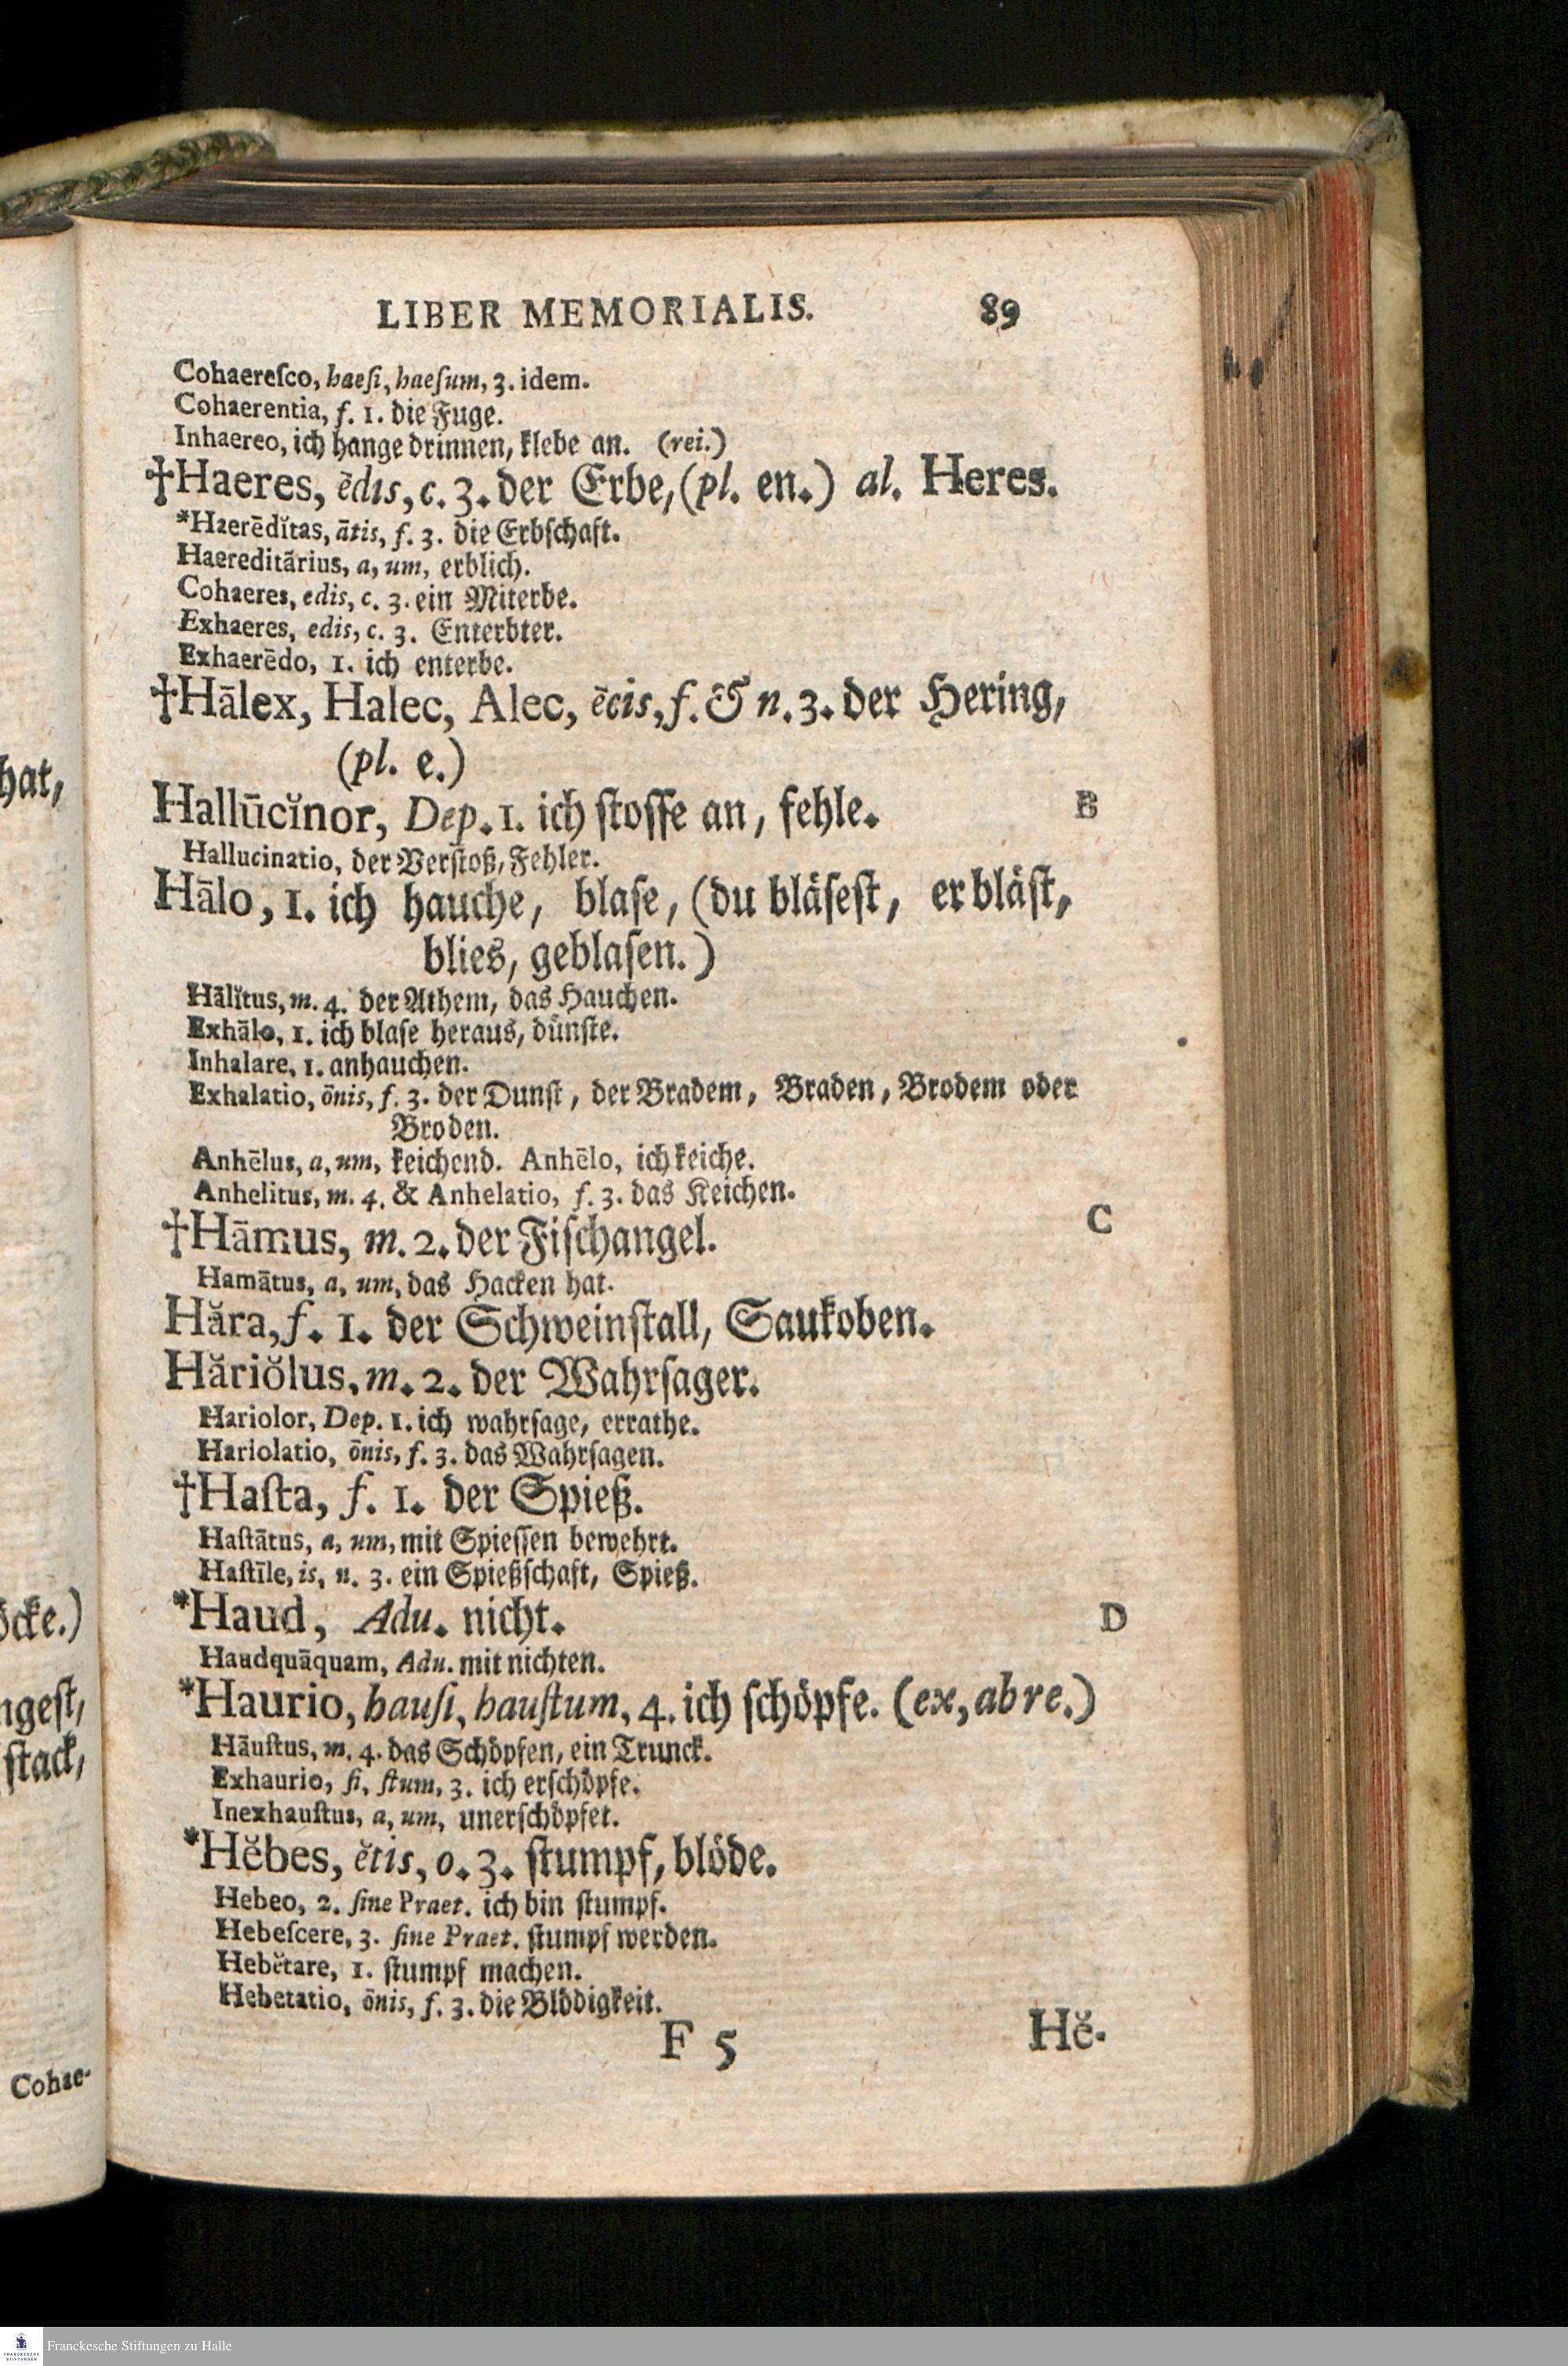 LIBER MEMORIALIS. 89
Cohaereſco, haeſi, haeſum, 3. idem.
Cohaerentia, f. 1. die Fuge.
Inhaereo, ich hange drinnen, klebe an. (rei.)
†Haeres, ēdis, c. 3. der Erbe, (pl. en.) al. Heres.
*Haerēdĭtas, ātis, f. 3. die Erbſchaft.
Haereditārius, a, um, erblich.
Cohaeres, edis, c. 3. ein Miterbe.
Exhaeres, edis, c. 3. Enterbter.
Exhaerēdo, 1. ich enterbe.
†Hālex, Halec, Alec, ēcis, f. & n. 3. der Hering,
(pl. e.)
Hallūcĭnor, Dep. 1. ich ſtoſſe an, fehle. B
Hallucinatio, der Verſtoß, Fehler.
Hālo, 1. ich hauche, blaſe, (du bläſeſt, er bläſt,
blies, geblaſen.)
Hālĭtus, m. 4. der Athem, das Hauchen.
Exhālo, 1. ich blaſe heraus, dünſte.
Inhalare, 1. anhauchen.
Exhalatio, ōnis, f. 3. der Dunſt, der Bradem, Braden, Brodem oder
Broden.
Anhēlus, a, um, keichend. Anhēlo, ich keiche.
Anhelitus, m. 4. & Anhelatio, f. 3. das Keichen.
†Hāmus, m. 2. der Fiſchangel. C
Hamātus, a, um, das Hacken hat.
Hăra, f. 1. der Schweinſtall, Saukoben.
Hăriŏlus, m. 2. der Wahrſager.
Hariolor, Dep. 1. ich wahrſage, errathe.
Hariolatio, ōnis, f. 3. das Wahrſagen.
†Haſta, f. 1. der Spieß.
Haſtātus, a, um, mit Spieſſen bewehrt.
Haſtīle, is, n. 3. ein Spießſchaft, Spieß.
*Haud, Adu. nicht. D
Haudquāquam, Adu. mit nichten.
*Haurio, hauſi, hauſtum, 4. ich ſchöpfe. (ex, ab re.)
Hāuſtus, m. 4. das Schöpfen, ein Trunck.
Exhaurio, ſi, ſtum, 3. ich erſchöpfe.
Inexhauſtus, a, um, unerſchöpfet.
*Hĕbes, ĕtis, o. 3. ſtumpf, blöde.
Hebeo, 2. ſine Praet. ich bin ſtumpf.
Hebeſcere, 3. ſine Praet. ſtumpf werden.
Hebĕtare, 1. ſtumpf machen.
Hebetatio, ōnis, f. 3. die Blödigkeit.
F 5 Hĕ-
hat,
öcke.)
ngeſt,
ſtack,
Cohae-
Franckesche Stiftungen zu Halle
FRANCKESCHE
STIFTUNGEN